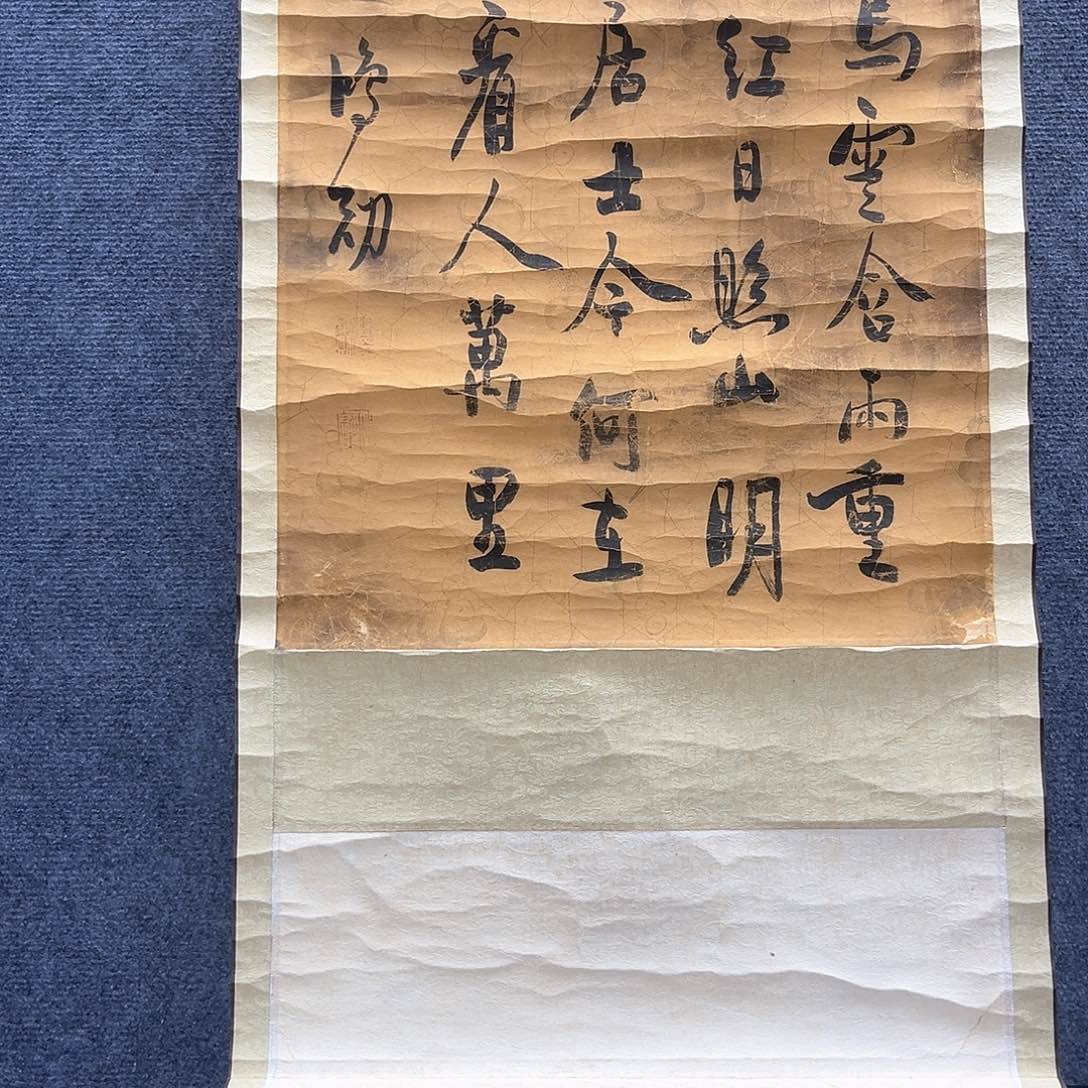 烏雲含雨重
紅日照山明
居士今何在
看人萬里